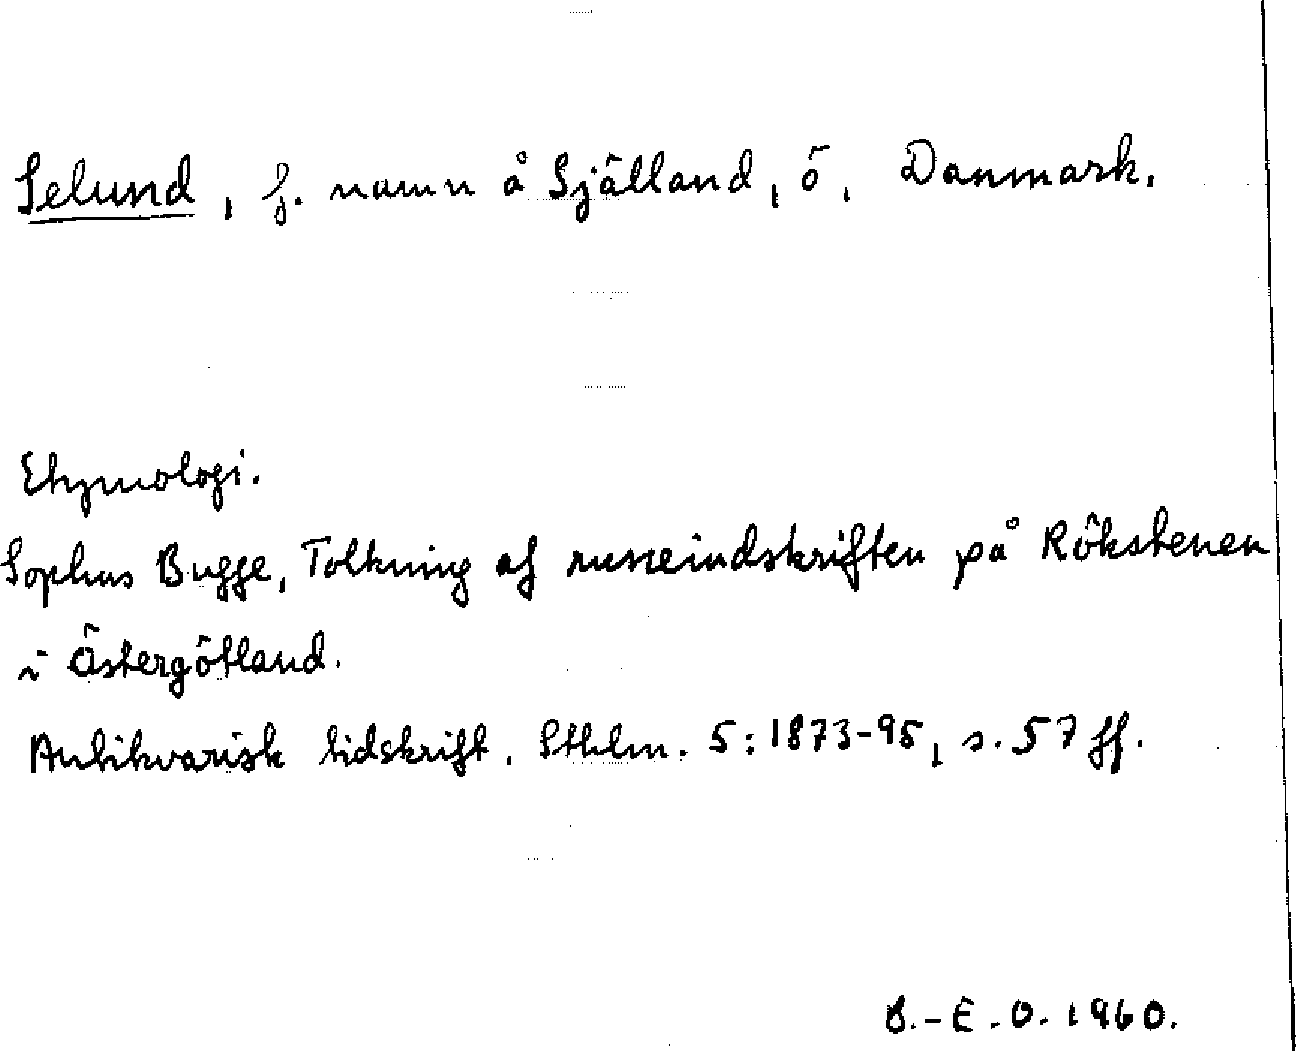 Selund, f. namn å Själland, ö, Danmark.
Etymologi.
Sophus Bugge, Tolkning af runeindskriften på Rökstenen
i Östergötland.
Antikvarisk tidskrift. Sthlm. 5: 1873-95, s. 57 ff.
B.-E.O. 1960.